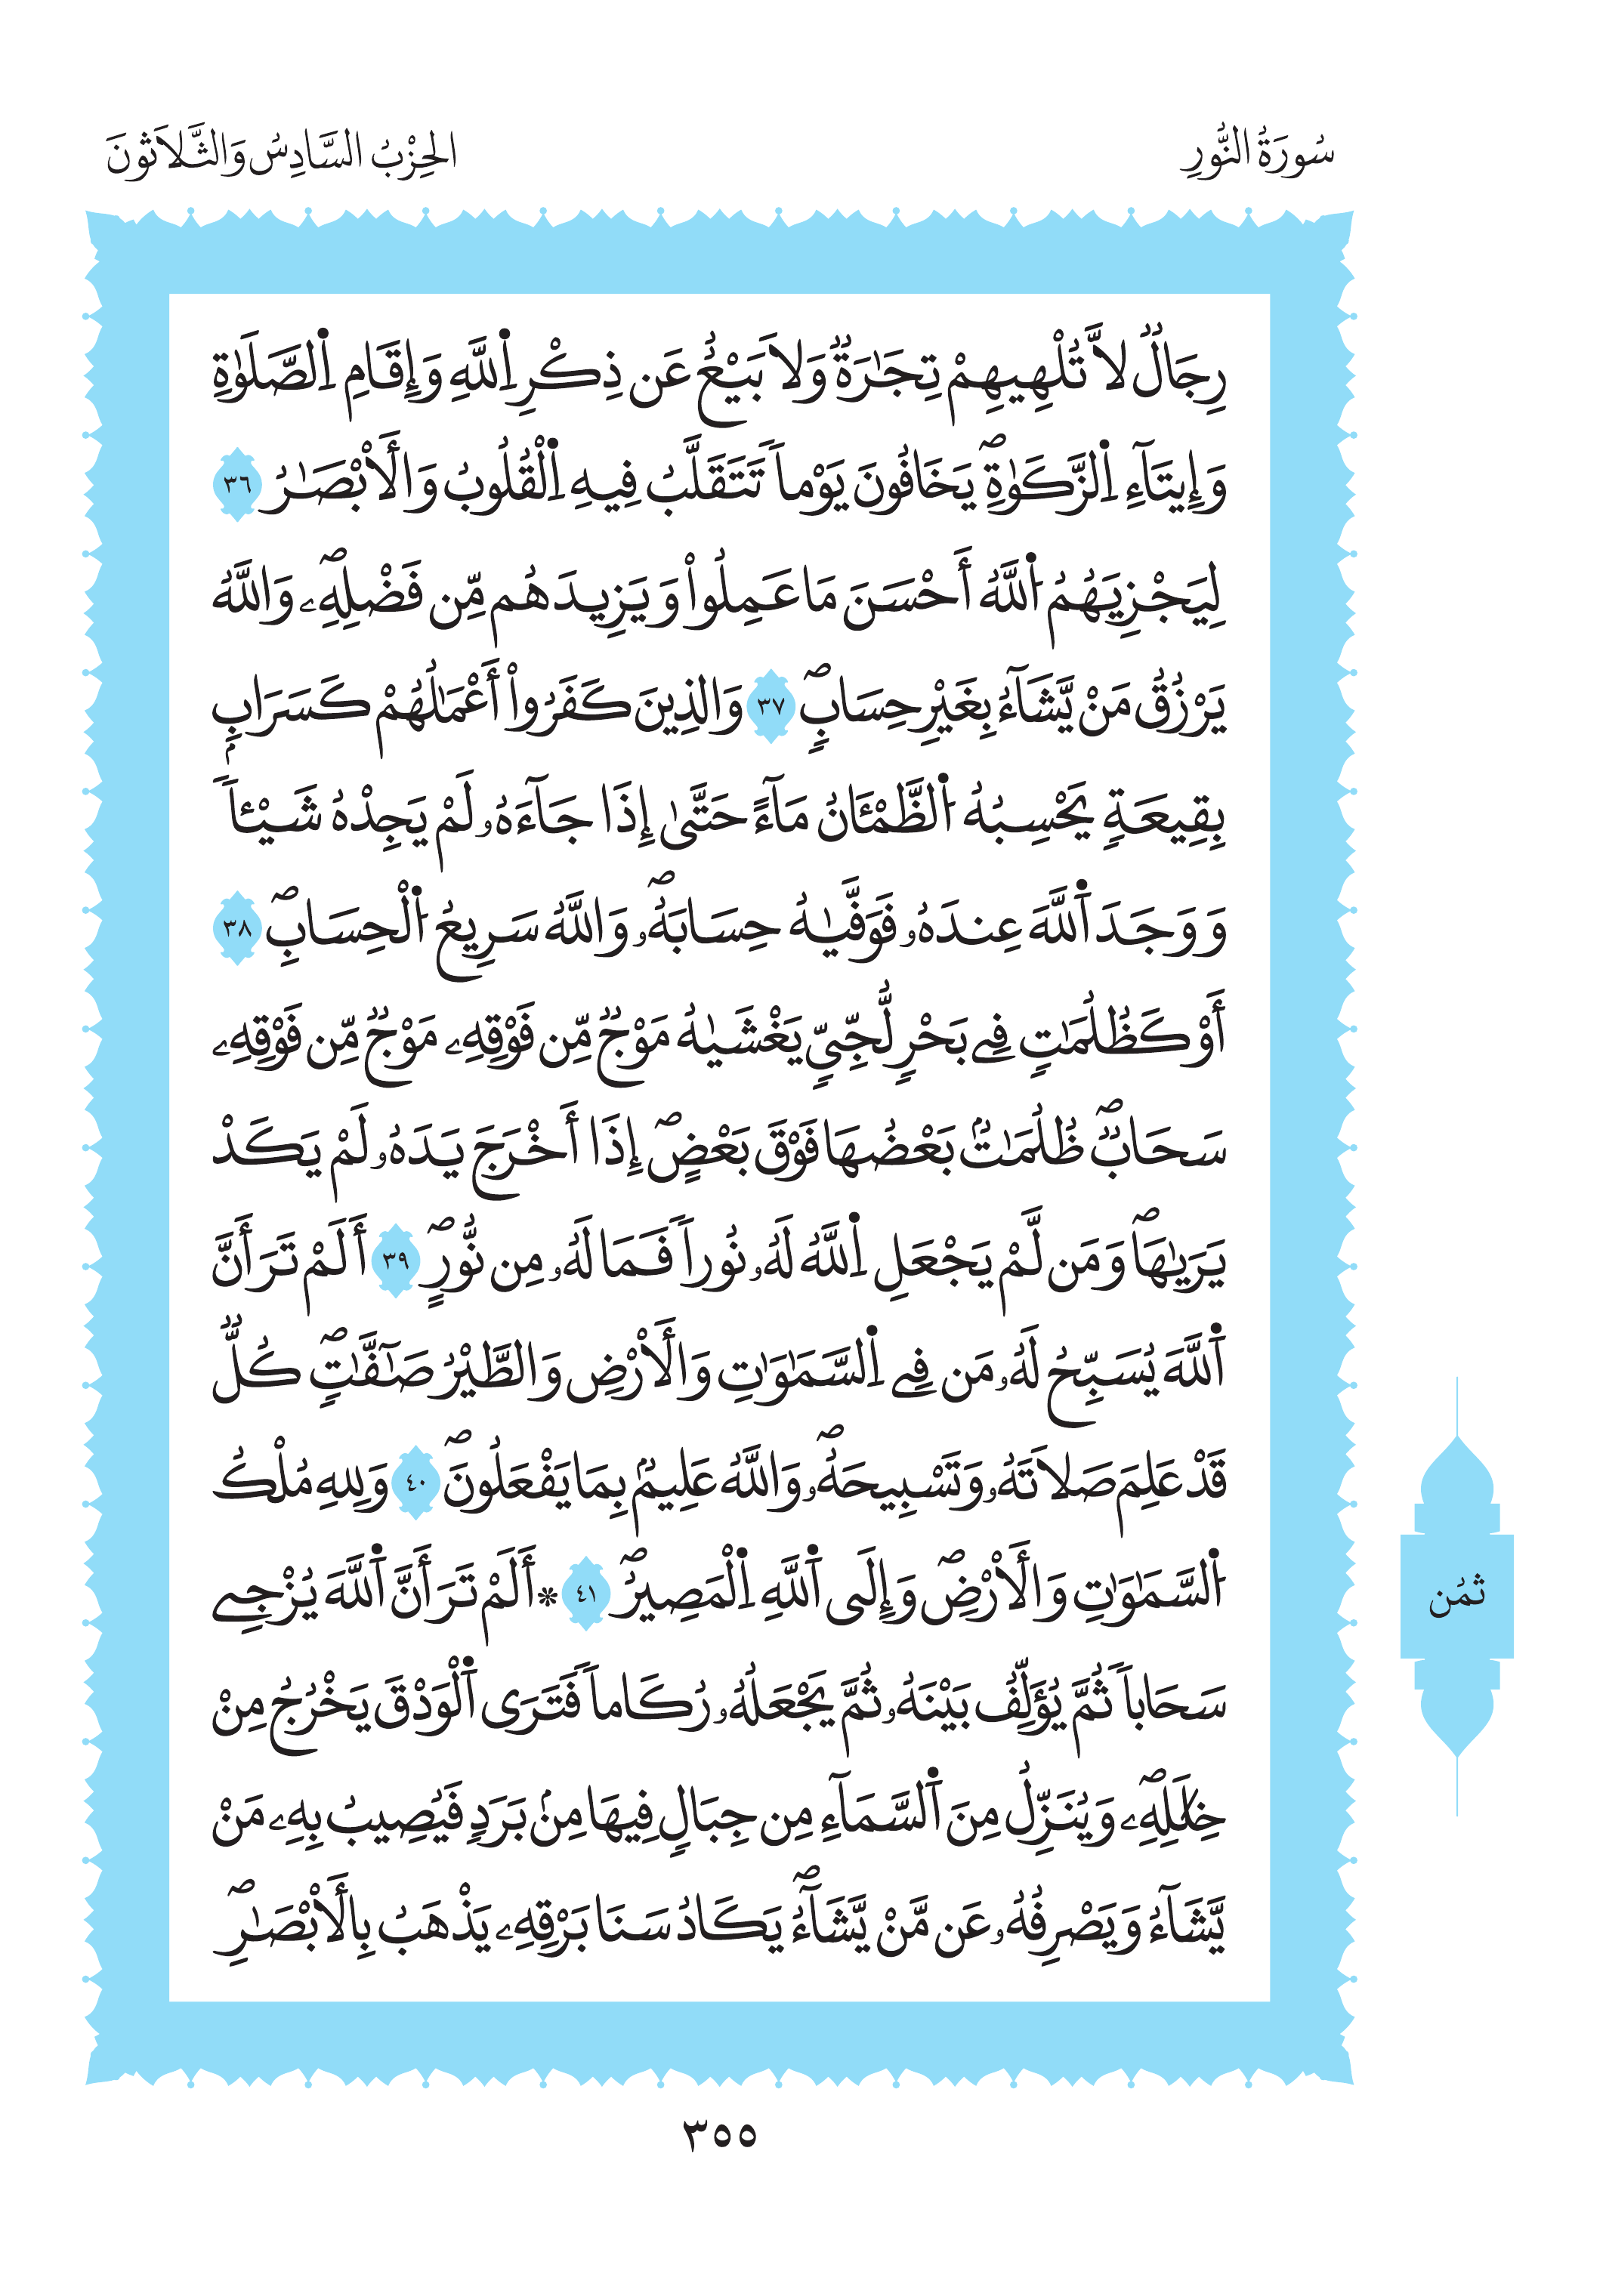 سُورَةُ النُّورِ
الحِزْبُ السَّادِسُ وَالثَّلَاثُونَ
رِجَالٞ لَّا تُلْهِيهِمْ تِجَٰرَةٞ وَلَا بَيْعٌ عَن ذِكْرِ اِ۬للَّهِ وَإِقَامِ اِ۬لصَّلَوٰةِ
وَإِيتَآءِ اِ۬لزَّكَوٰةِۖ يَخَافُونَ يَوْماٗ تَتَقَلَّبُ فِيهِ اِ۬لْقُلُوبُ وَالَابْصَٰرُ ٣٦
لِيَجْزِيَهُمُ اُ۬للَّهُ أَحْسَنَ مَا عَمِلُواْ وَيَزِيدَهُم مِّن فَضْلِهِۦۖ وَاللَّهُ
يَرْزُقُ مَنْ يَّشَآءُ بِغَيْرِ حِسَابٖۖ ٣٧ وَالذِينَ كَفَرُواْ أَعْمَٰلُهُمْ كَسَرَابِۢ
بِقِيعَةٖ يَحْسِبُهُ اُ۬لظَّمْـَٔانُ مَآءً حَتَّىٰ إِذَا جَآءَهُۥ لَمْ يَجِدْهُ شَيْـٔاٗ
وَوَجَدَ اَ۬للَّهَ عِندَهُۥ فَوَفَّيٰهُ حِسَابَهُۥۖ وَاللَّهُ سَرِيعُ اُ۬لْحِسَابِۖ ٣٨
أَوْ كَظُلُمَٰتٖ فِے بَحْرٖ لُّجِّيّٖ يَغْشَيٰهُ مَوْجٞ مِّن فَوْقِهِۦ مَوْجٞ مِّن فَوْقِهِۦ
سَحَابٞۖ ظُلُمَٰتُۢ بَعْضُهَا فَوْقَ بَعْضٍۖ إِذَا أَخْرَجَ يَدَهُۥ لَمْ يَكَدْ
يَرَيٰهَاۖ وَمَن لَّمْ يَجْعَلِ اِ۬للَّهُ لَهُۥ نُوراٗ فَمَا لَهُۥ مِن نُّورٍۖ ٣٩ أَلَمْ تَرَ أَنَّ
اَ۬للَّهَ يُسَبِّحُ لَهُۥ مَن فِے اِ۬لسَّمَٰوَٰتِ وَالَارْضِ وَالطَّيْرُ صَٰٓفَّٰتٖۖ كُلّٞ
قَدْ عَلِمَ صَلَاتَهُۥ وَتَسْبِيحَهُۥۖ وَاللَّهُ عَلِيمُۢ بِمَا يَفْعَلُونَۖ ٤٠ وَلِلهِ مُلْكُ
اُ۬لسَّمَٰوَٰتِ وَالَارْضِۖ وَإِلَى اَ۬للَّهِ اِ۬لْمَصِيرُۖ ٤١ * أَلَمْ تَرَ أَنَّ اَ۬للَّهَ يُزْجِے
سَحَاباٗ ثُمَّ يُؤَلِّفُ بَيْنَهُۥ ثُمَّ يَجْعَلُهُۥ رُكَاماٗ فَتَرَى اَ۬لْوَدْقَ يَخْرُجُ مِنْ
خِلَٰلِهِۦۖ وَيُنَزِّلُ مِنَ اَ۬لسَّمَآءِ مِن جِبَالٖ فِيهَا مِنۢ بَرَدٖ فَيُصِيبُ بِهِۦ مَنْ
يَّشَآءُ وَيَصْرِفُهُۥ عَن مَّنْ يَّشَآءُۖ يَكَادُ سَنَا بَرْقِهِۦ يَذْهَبُ بِالَابْصَٰرِۖ
ثمُن
٣٥٥